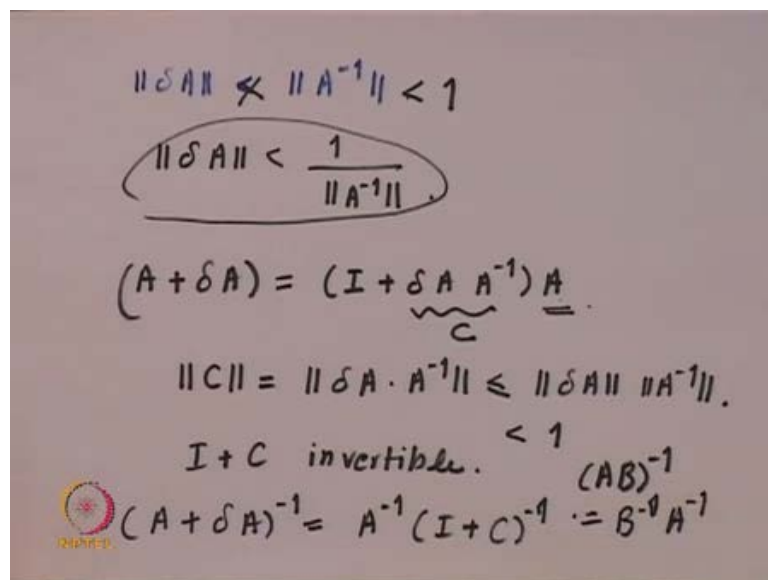 ||δA|| ||A⁻¹|| < 1
||δA|| < 1 / ||A⁻¹||.
(A + δA) = (I + δA A⁻¹) A.
C
||C|| = ||δA · A⁻¹|| ≤ ||δA|| ||A⁻¹||.
< 1
I + C invertible. (AB)⁻¹
(A + δA)⁻¹ = A⁻¹ (I + C)⁻¹ = B⁻¹ A⁻¹
NPTEL